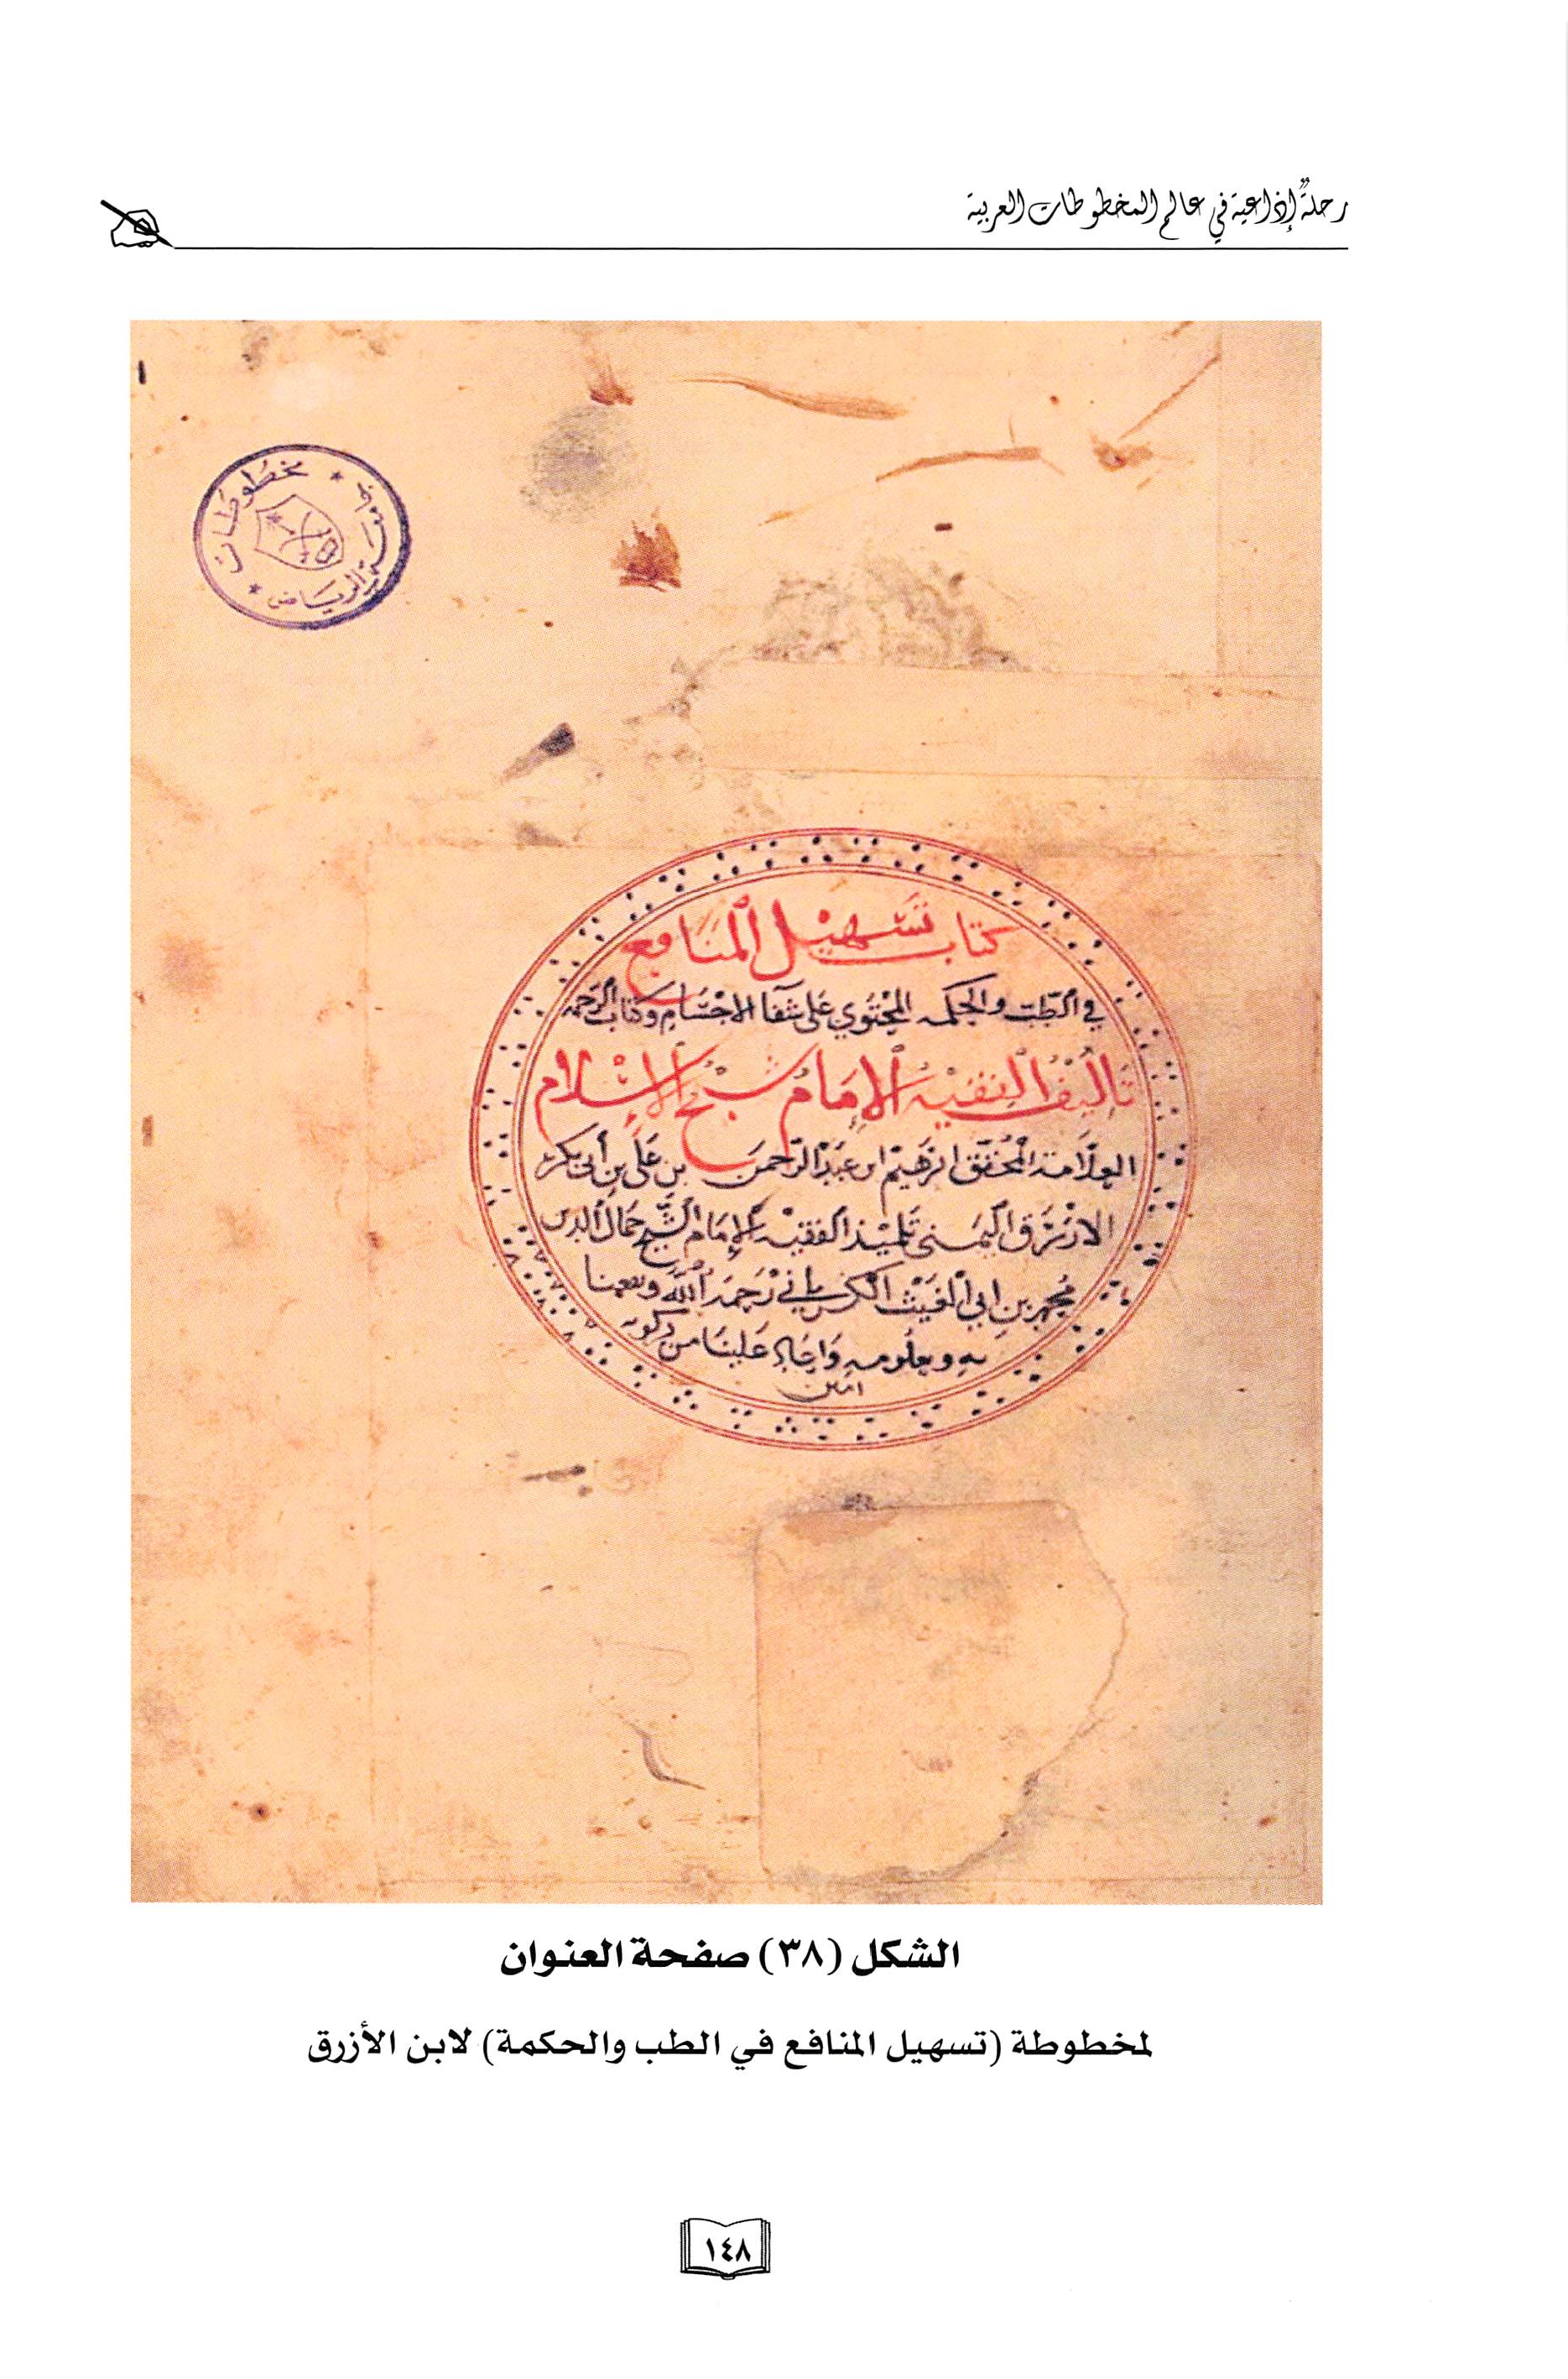 رحلةٌ إذاعية في عالم المخطوطات العربية
مخطوطات
جامعة الرياض
كتاب تسهيل المنافع
في الطب والحكمه المحتوي على شفا الاجسام وكتاب الرحمه
تاليف الفقيه الإمام شيخ الإسلام
العلامة المحقق ابرهيم ابن عبد الرحمن بن علي بن أبي بكر
الازرق اليمني تلميذ الفقيه الإمام الشيخ جمال الدين
محمد بن ابي الغيث الكرماني رحمه الله ونفعنا
به وبعلومه واعاد علينا من بركته
امين
الشكل (٣٨) صفحة العنوان
لمخطوطة (تسهيل المنافع في الطب والحكمة) لابن الأزرق
١٤٨